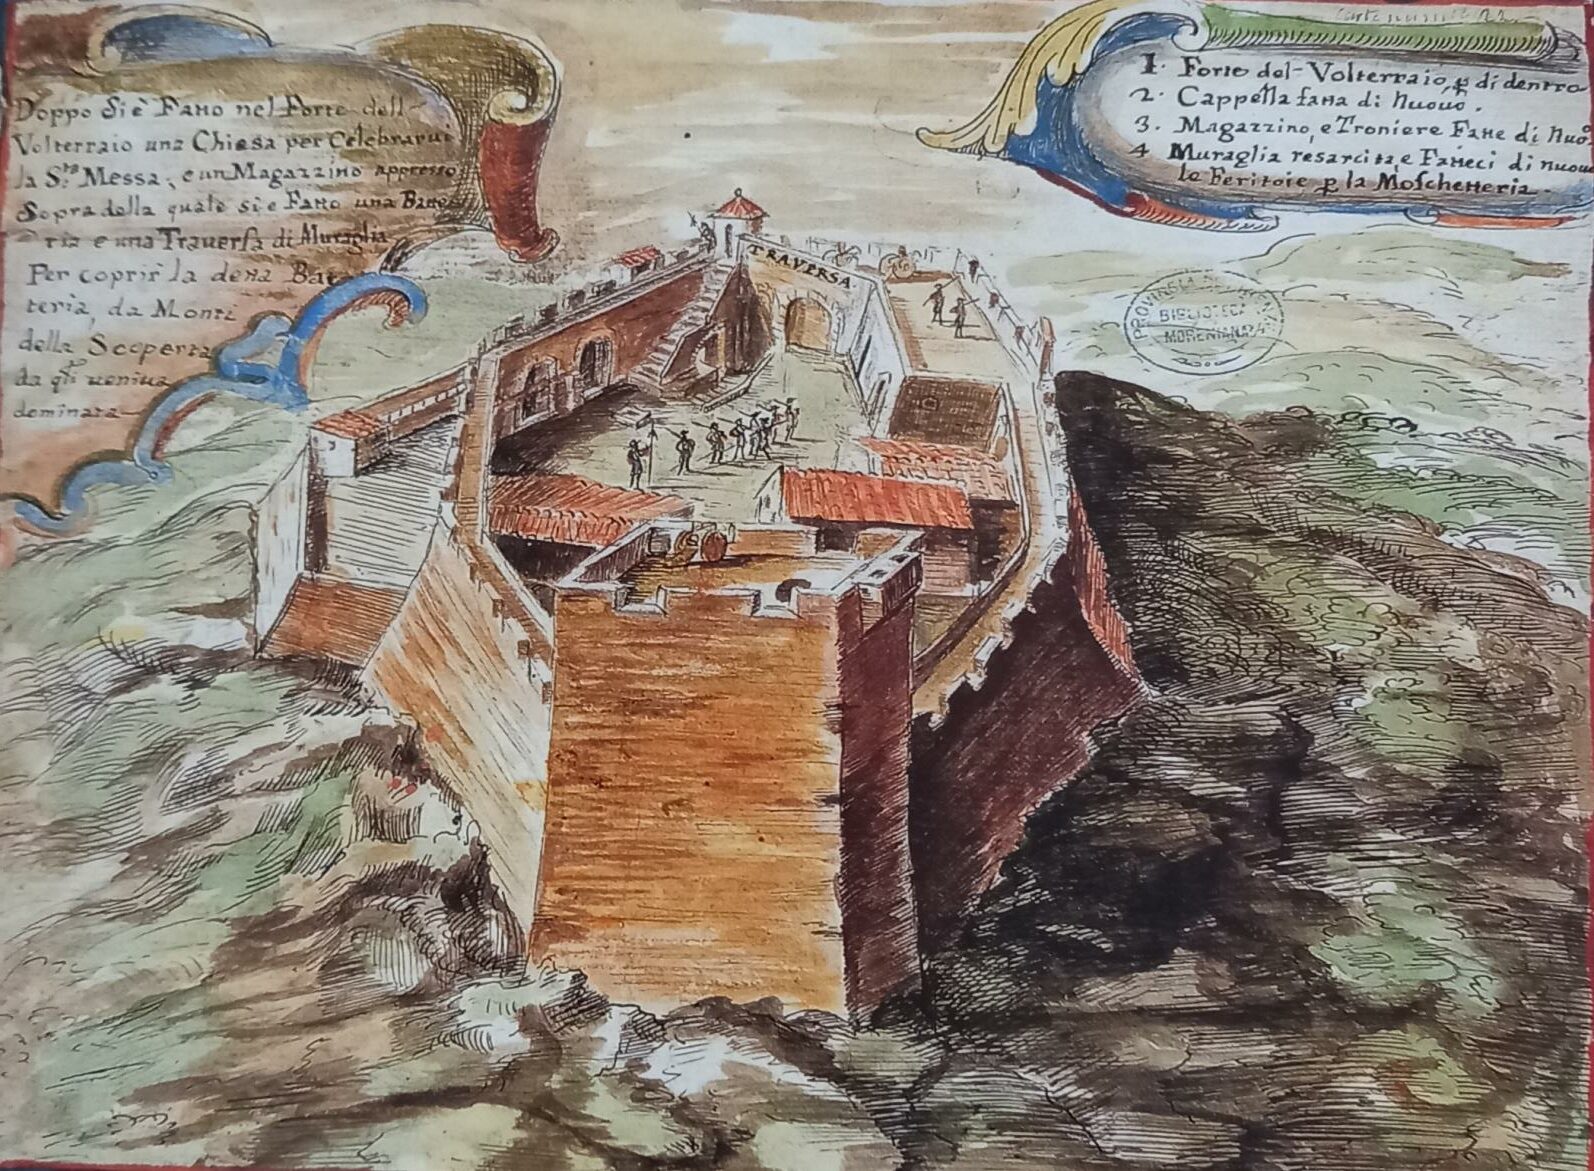 Doppo si è Fatto nel Forte dell
Volterraio una Chiesa per Celebrarui
la S.ta Messa, e un Magazzino appresso
Sopra della quale si e Fatto una Batte
ria e una Trauersa di Muraglia
Per coprir la detta Bat
teria, da Monti
della Scoperta
da qli ueniua
dominata
1. Forte del Volterraio, p di dentro
2. Cappella fatta di Nuouo.
3. Magazzino, e Troniere Fatte di Nuo
4 Muraglia resarcita, e Fatteci di nuouo
le Feritoie p la Moschetteria.
TRAVERSA
BIBLIOTECA
MORENIANA